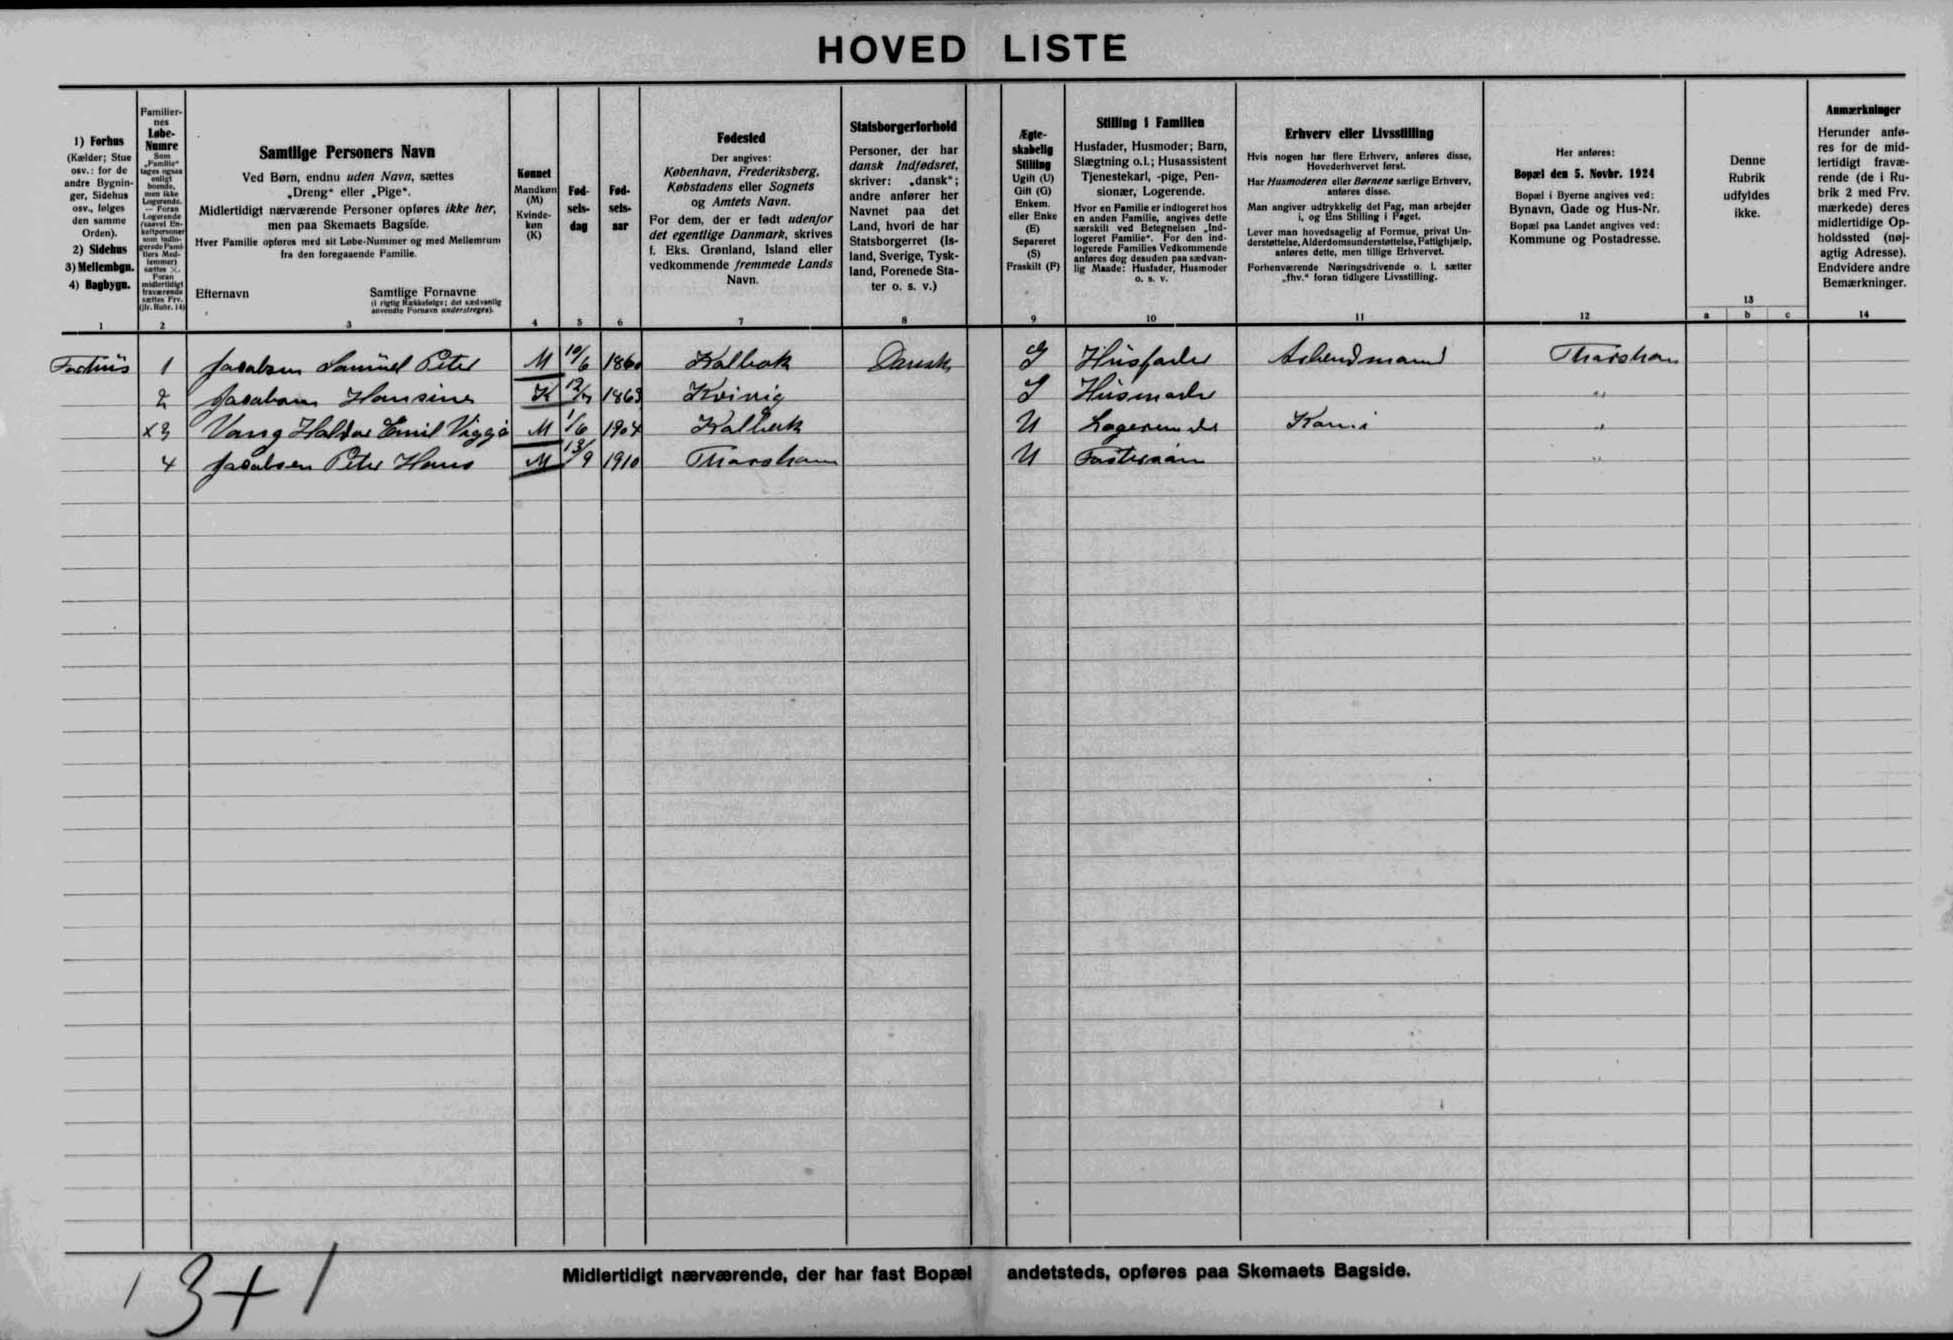 HOVED LISTE
1) Forhus
(Kælder; Stue
osv.: for de
andre Bygnin-
ger, Sidehus
osv., følges
den samme
Orden).
2) Sidehus
3) Mellembgn.
4) Bagbygn.
1
Familier-
nes
Løbe-
Numre
2
Samtlige Personers Navn
Ved Børn, endnu uden Navn, sættes
„Dreng“ eller „Pige“.
Midlertidigt nærværende Personer opføres ikke her,
men paa Skemaets Bagside.
Hver Familie opføres med sit Løbe-Nummer og med Mellemrum
fra den foregaaende Familie.
Efternavn Samtlige Fornavne
(i rigtig Rækkefølge; det sædvanlig
anvendte Fornavn understreges).
3
Kønnet
Mandkøn
(M)
Kvinde-
køn
(K)
4
Fød-
sels-
dag
5
Fød-
sels-
aar
6
Fødested
Der angives:
København, Frederiksberg,
Købstadens eller Sognets
og Amtets Navn.
For dem, der er født udenfor
det egentlige Danmark, skrives
f. Eks. Grønland, Island eller
vedkommende fremmede Lands
Navn.
7
Statsborgerforhold
Personer, der har
dansk Indfødsret,
skriver: „dansk“;
andre anfører her
Navnet paa det
Land, hvori de har
Statsborgerret (Is-
land, Sverige, Tysk-
land, Forenede Sta-
ter o. s. v.)
8
Ægte-
skabelig
Stilling
Ugift (U)
Gift (G)
Enkem.
eller Enke
(E)
Separeret
(S)
Fraskilt (F)
9
Stilling i Familien
Husfader, Husmoder; Barn,
Slægtning o.l.; Husassistent
Tjenestekarl, -pige, Pen-
sionær, Logerende.
Hvor en Familie er indlogeret hos
en anden Familie, angives dette
særskilt ved Betegnelsen „Ind-
logeret Familie“. For den ind-
logerede Families Vedkommende
anføres dog desuden paa sædvan-
lig Maade: Husfader, Husmoder
o. s. v.
10
Erhverv eller Livsstilling
Hvis nogen har flere Erhverv, anføres disse,
Hovederhvervet først.
Har Husmoderen eller Børnene særlige Erhverv,
anføres disse.
Man angiver udtrykkelig det Fag, man arbejder
i, og Ens Stilling i Faget.
Lever man hovedsagelig af Formue, privat Un-
derstøttelse, Alderdomsunderstøttelse, Fattighjælp,
anføres dette, men tillige Erhvervet.
Forhenværende Næringsdrivende o. l. sætter
„fhv.“ foran tidligere Livsstilling.
11
Her anføres:
Bopæl den 5. Novbr. 1924
Bopæl i Byerne angives ved:
Bynavn, Gade og Hus-Nr.
Bopæl paa Landet angives ved:
Kommune og Postadresse.
12
Denne
Rubrik
udfyldes
ikke.
13
a b c
Anmærkninger
Herunder anfø-
res for de mid-
lertidigt fravæ-
rende (de i Ru-
brik 2 med Frv.
mærkede) deres
midlertidige Op-
holdssted (nøj-
agtig Adresse).
Endvidere andre
Bemærkninger.
14
1 Jacobsen Samuel Peter M 10/6 1860 Kalbak Dansk G Husfader Arbeidsmand Thorshavn
2 Jacobsen Hansine K 1863 Kvivig G Husmoder "
x3 Vang Haldor Emil Viggo M 1/6 1904 Kalbak U Logerende "
4 Jacobsen Peter Hans M 13/9 1910 Thorshavn U Fostersøn "
Midlertidigt nærværende, der har fast Bopæl andetsteds, opføres paa Skemaets Bagside.
3+1